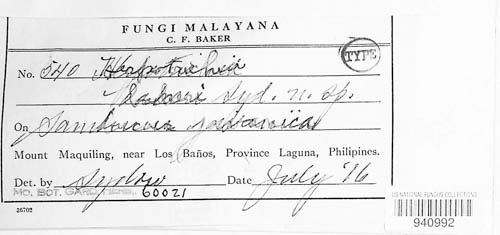 FUNGI MALAYANA
C. F. BAKER
TYPE
No. 540 Herpotrichia
Bakeri Syd. n. sp.
On Sambucus javanica
Mount Maquiling, near Los Baños, Province Laguna, Philipines.
Det. by Sydow Date July '16
MO. BOT. GARD. HERB. 60021
26702
US NATIONAL FUNGUS COLLECTIONS
940992